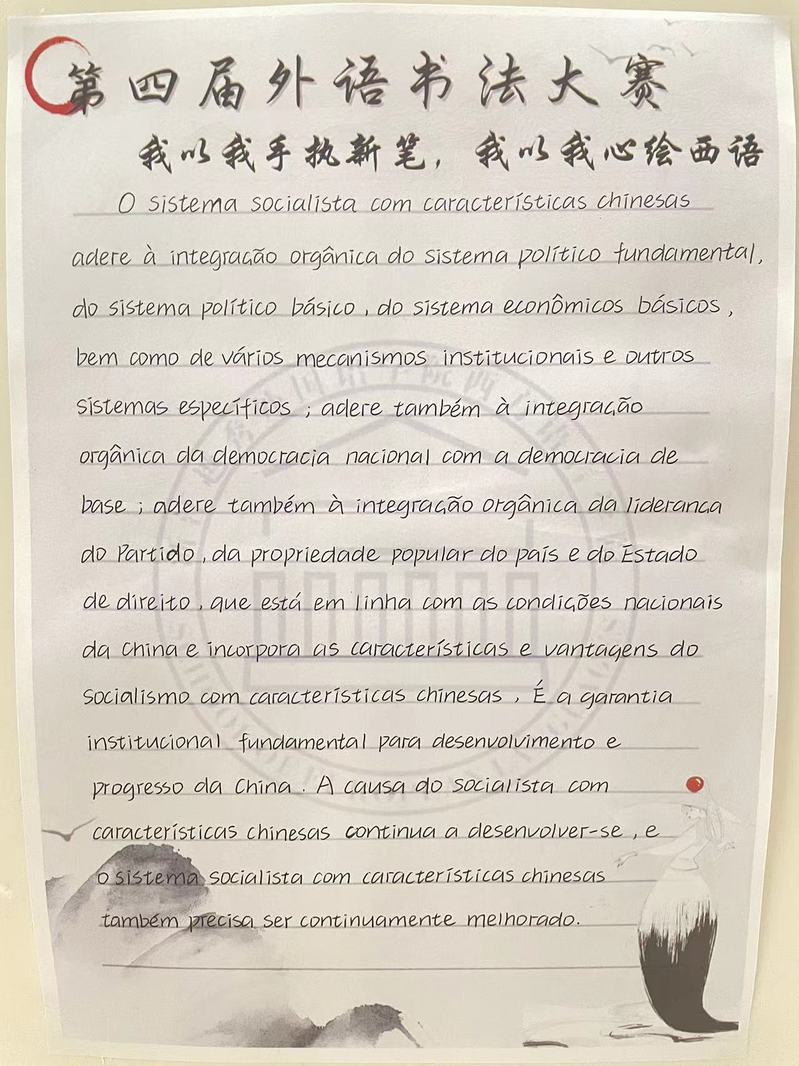 第四届外语书法大赛
我以我手执新笔，我以我心绘西语
O sistema socialista com características chinesas
adere à integração orgânica do sistema político fundamental,
do sistema político básico, do sistema econômicos básicos,
bem como de vários mecanismos institucionais e outros
sistemas específicos ; adere também à integração
orgânica da democracia nacional com a democracia de
base ; adere também à integração orgânica da liderança
do Partido, da propriedade popular do país e do Estado
de direito, que está em linha com as condições nacionais
da China e incorpora as características e vantagens do
socialismo com características chinesas, É a garantia
institucional fundamental para desenvolvimento e
progresso da China. A causa do socialista com
características chinesas continua a desenvolver-se, e
o sistema socialista com características chinesas
também precisa ser continuamente melhorado.